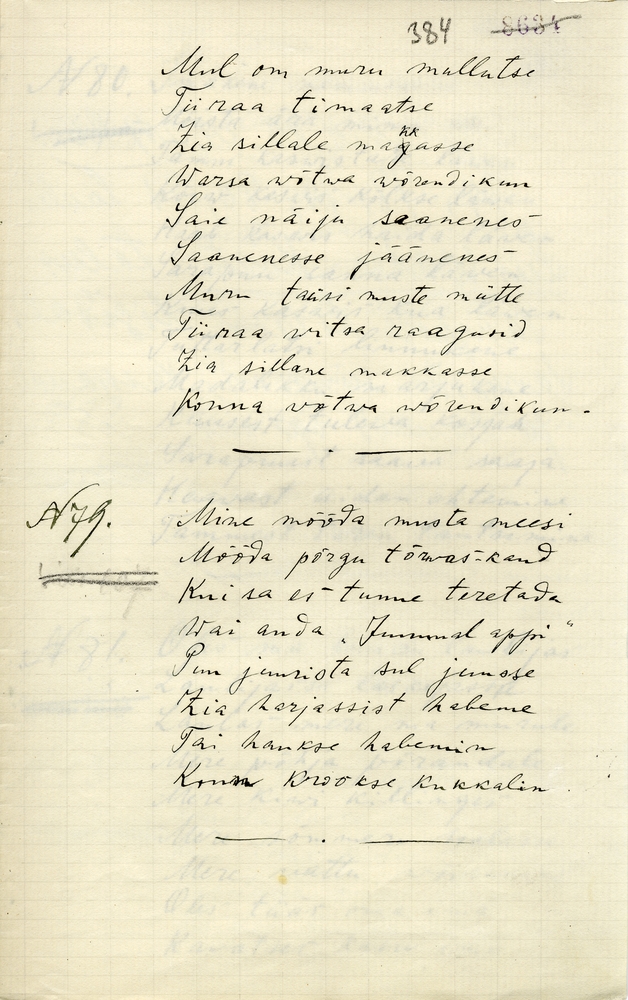 384 8684
Mul om muru mullutse
Tiiraa timaatse
Zia sillale makkasse
Warsa wõtwa wõrendikun
Saie näiju saanenes
Saanenesse jäänenes
Muru taisi muste mütte
Tiiraa witsa raagusid
Zia sillane makkasse
Konna võtwa wõrendikun.
N 79.
Mine mööda musta meesi
Mööda põrgu tõrwas-kand
Kui sa es tunne teretada
Wai anda „Jummal appi“
Pun juurista sul junose
Zia harjassist habeme
Tai hankse habemin
Krookse kukkalin